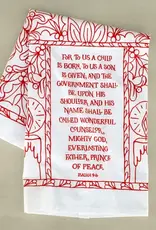 FOR TO US A CHILD
IS BORN, TO US A SON
IS GIVEN, AND THE
GOVERNMENT SHALL
BE UPON HIS
SHOULDER AND HIS
NAME SHALL BE
CALLED WONDERFUL
COUNSELOR,
MIGHTY GOD,
EVERLASTING
FATHER, PRINCE
OF PEACE.
ISAIAH 9:6